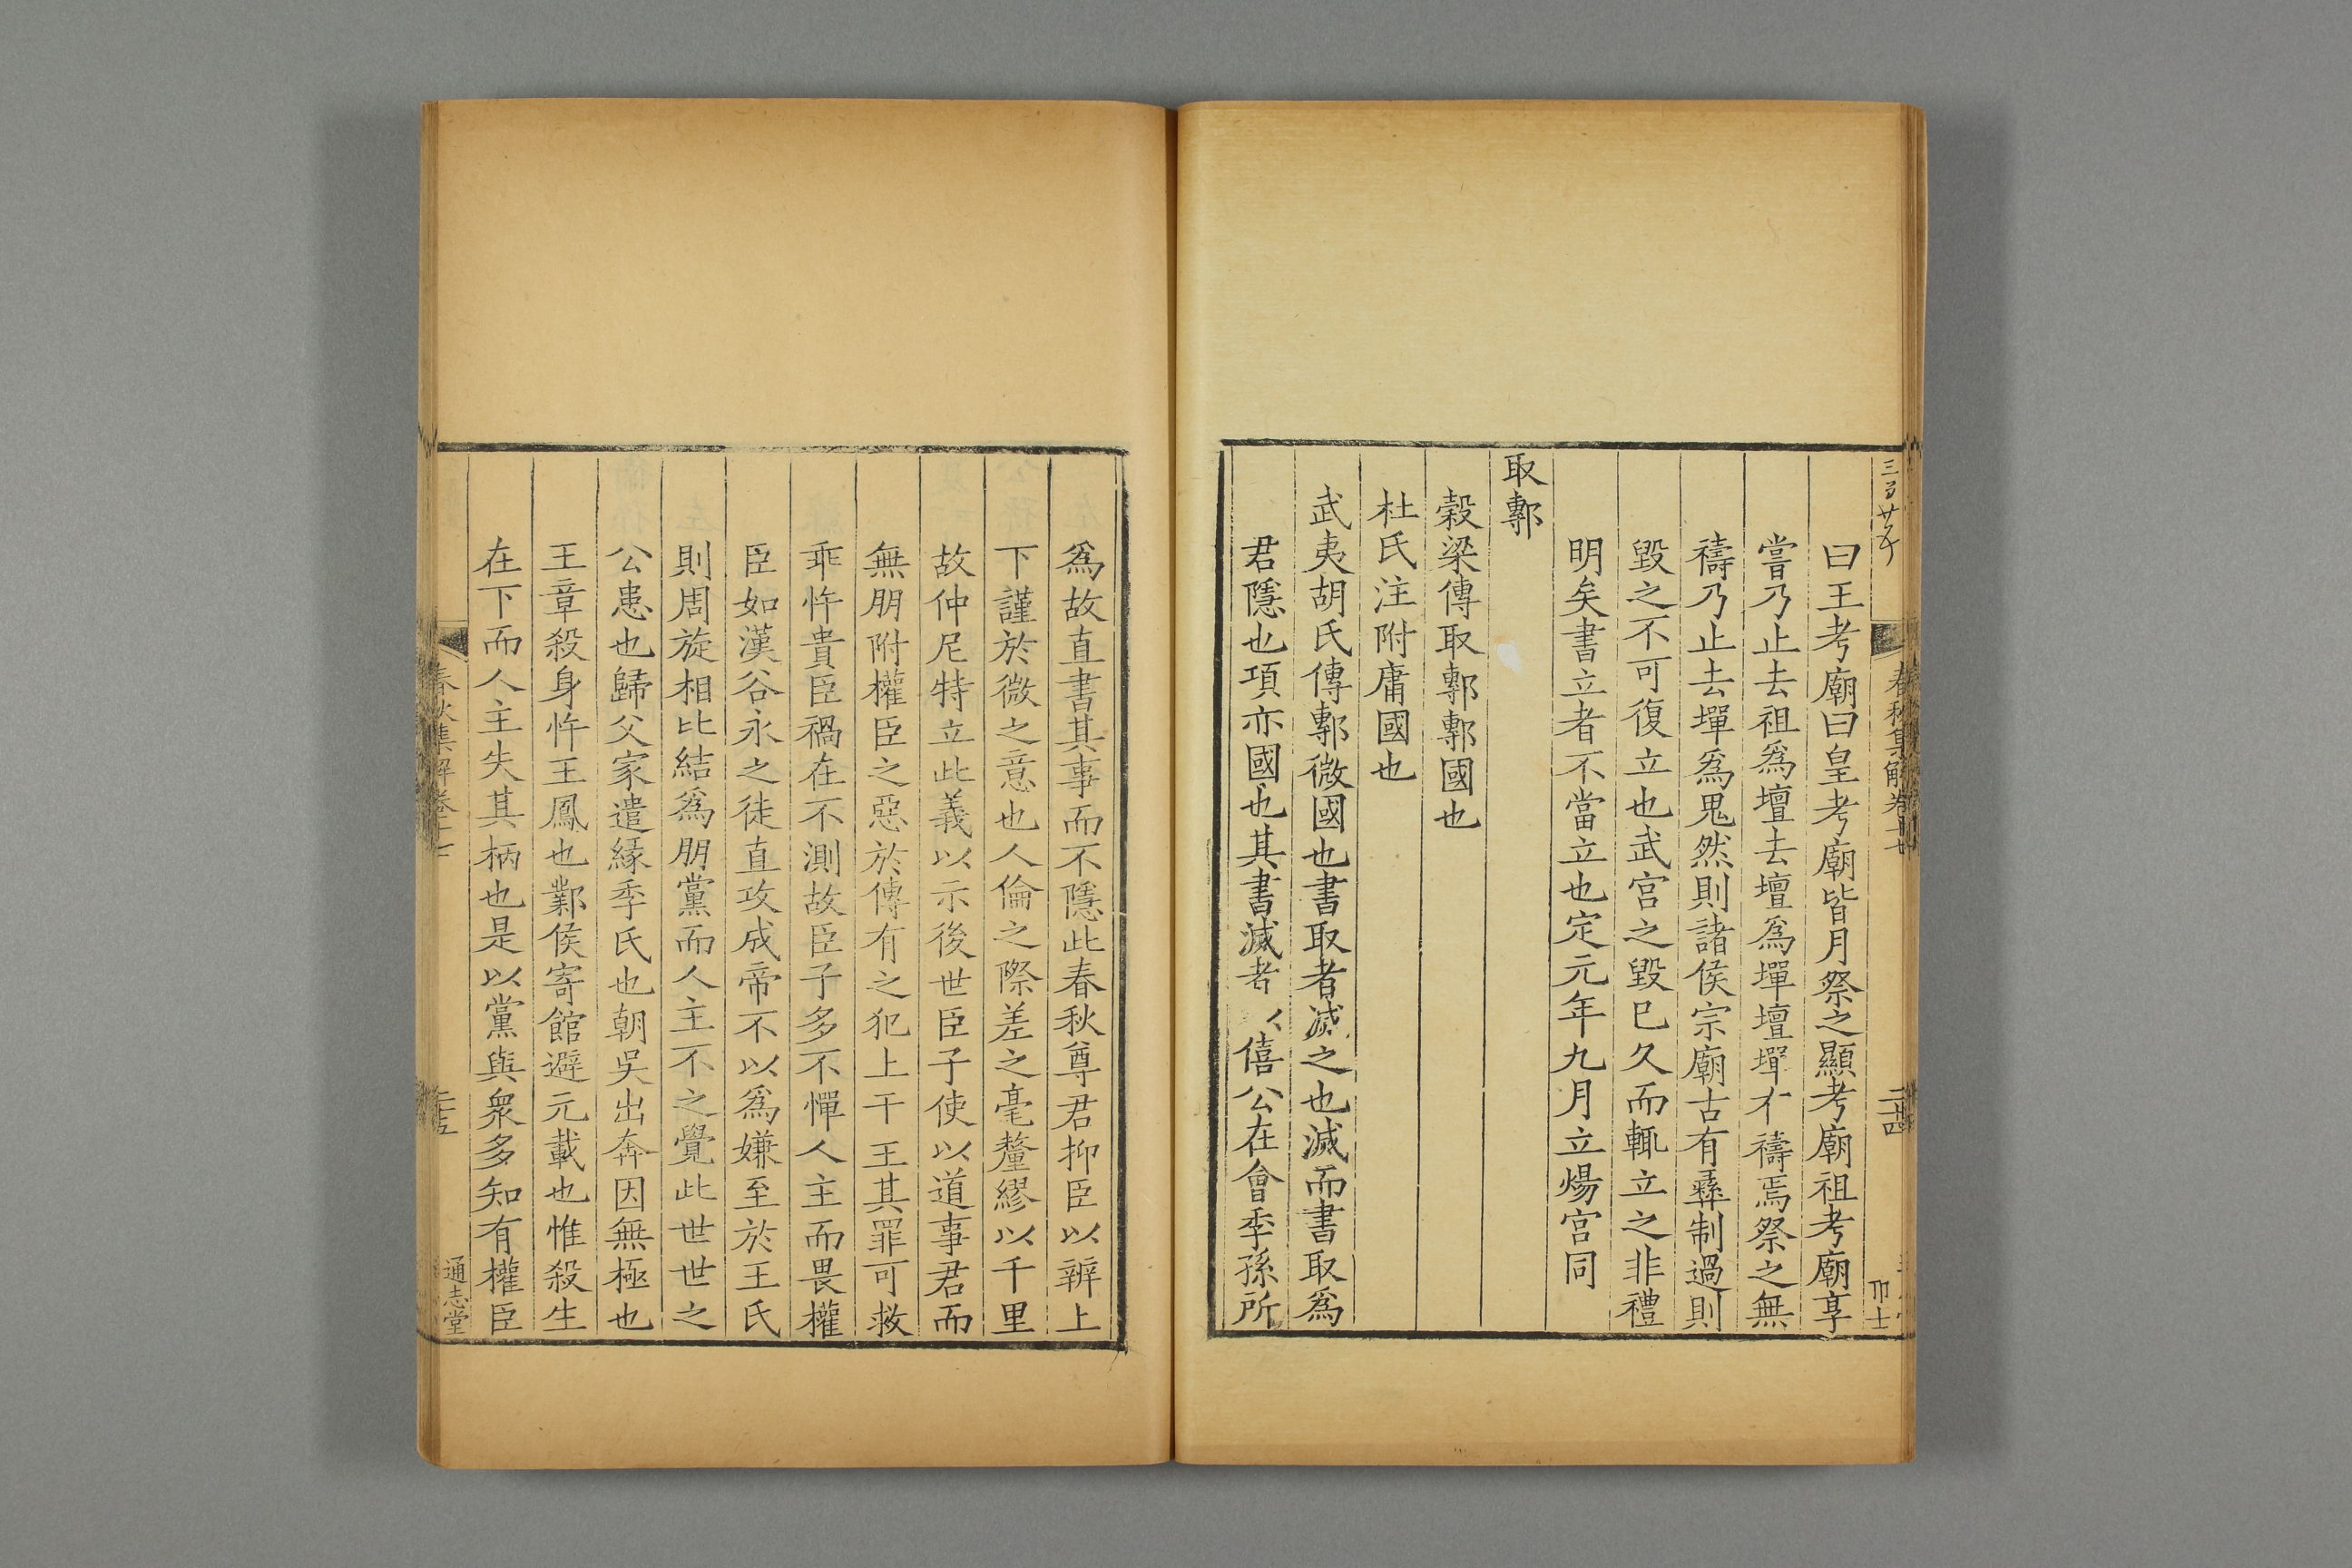 春秋集解卷十七
二十四
曰王考廟曰皇考廟皆月祭之顯考廟祖考廟享
嘗乃止去祖爲壇去壇爲墠壇墠有禱焉祭之無
禱乃止去墠爲鬼然則諸侯宗廟古有彝制過則
毀之不可復立也武宮之毀已久而輒立之非禮
明矣書立者不當立也定元年九月立煬宮同
取鄟
穀梁傳取鄟鄟國也
杜氏注附庸國也
武夷胡氏傳鄟微國也書取者滅之也滅而書取爲
君隱也項亦國也其書滅者以僖公在會季孫所
爲故直書其事而不隱此春秋尊君抑臣以辨上
下謹於微之意也人倫之際差之毫釐繆以千里
故仲尼特立此義以示後世臣子使以道事君而
無朋附權臣之惡於傳有之犯上干王其罪可救
乖忤貴臣禍在不測故臣子多不憚人主而畏權
臣如漢谷永之徒直攻成帝不以爲嫌至於王氏
則周旋相比結爲朋黨而人主不之覺此世世之
公患也歸父家遣緣季氏也朝吳出奔因無極也
王章殺身忤王鳳也鄴侯寄館避元載也惟殺生
在下而人主失其柄也是以黨與衆多知有權臣
春秋集解卷十七
二十五
通志堂